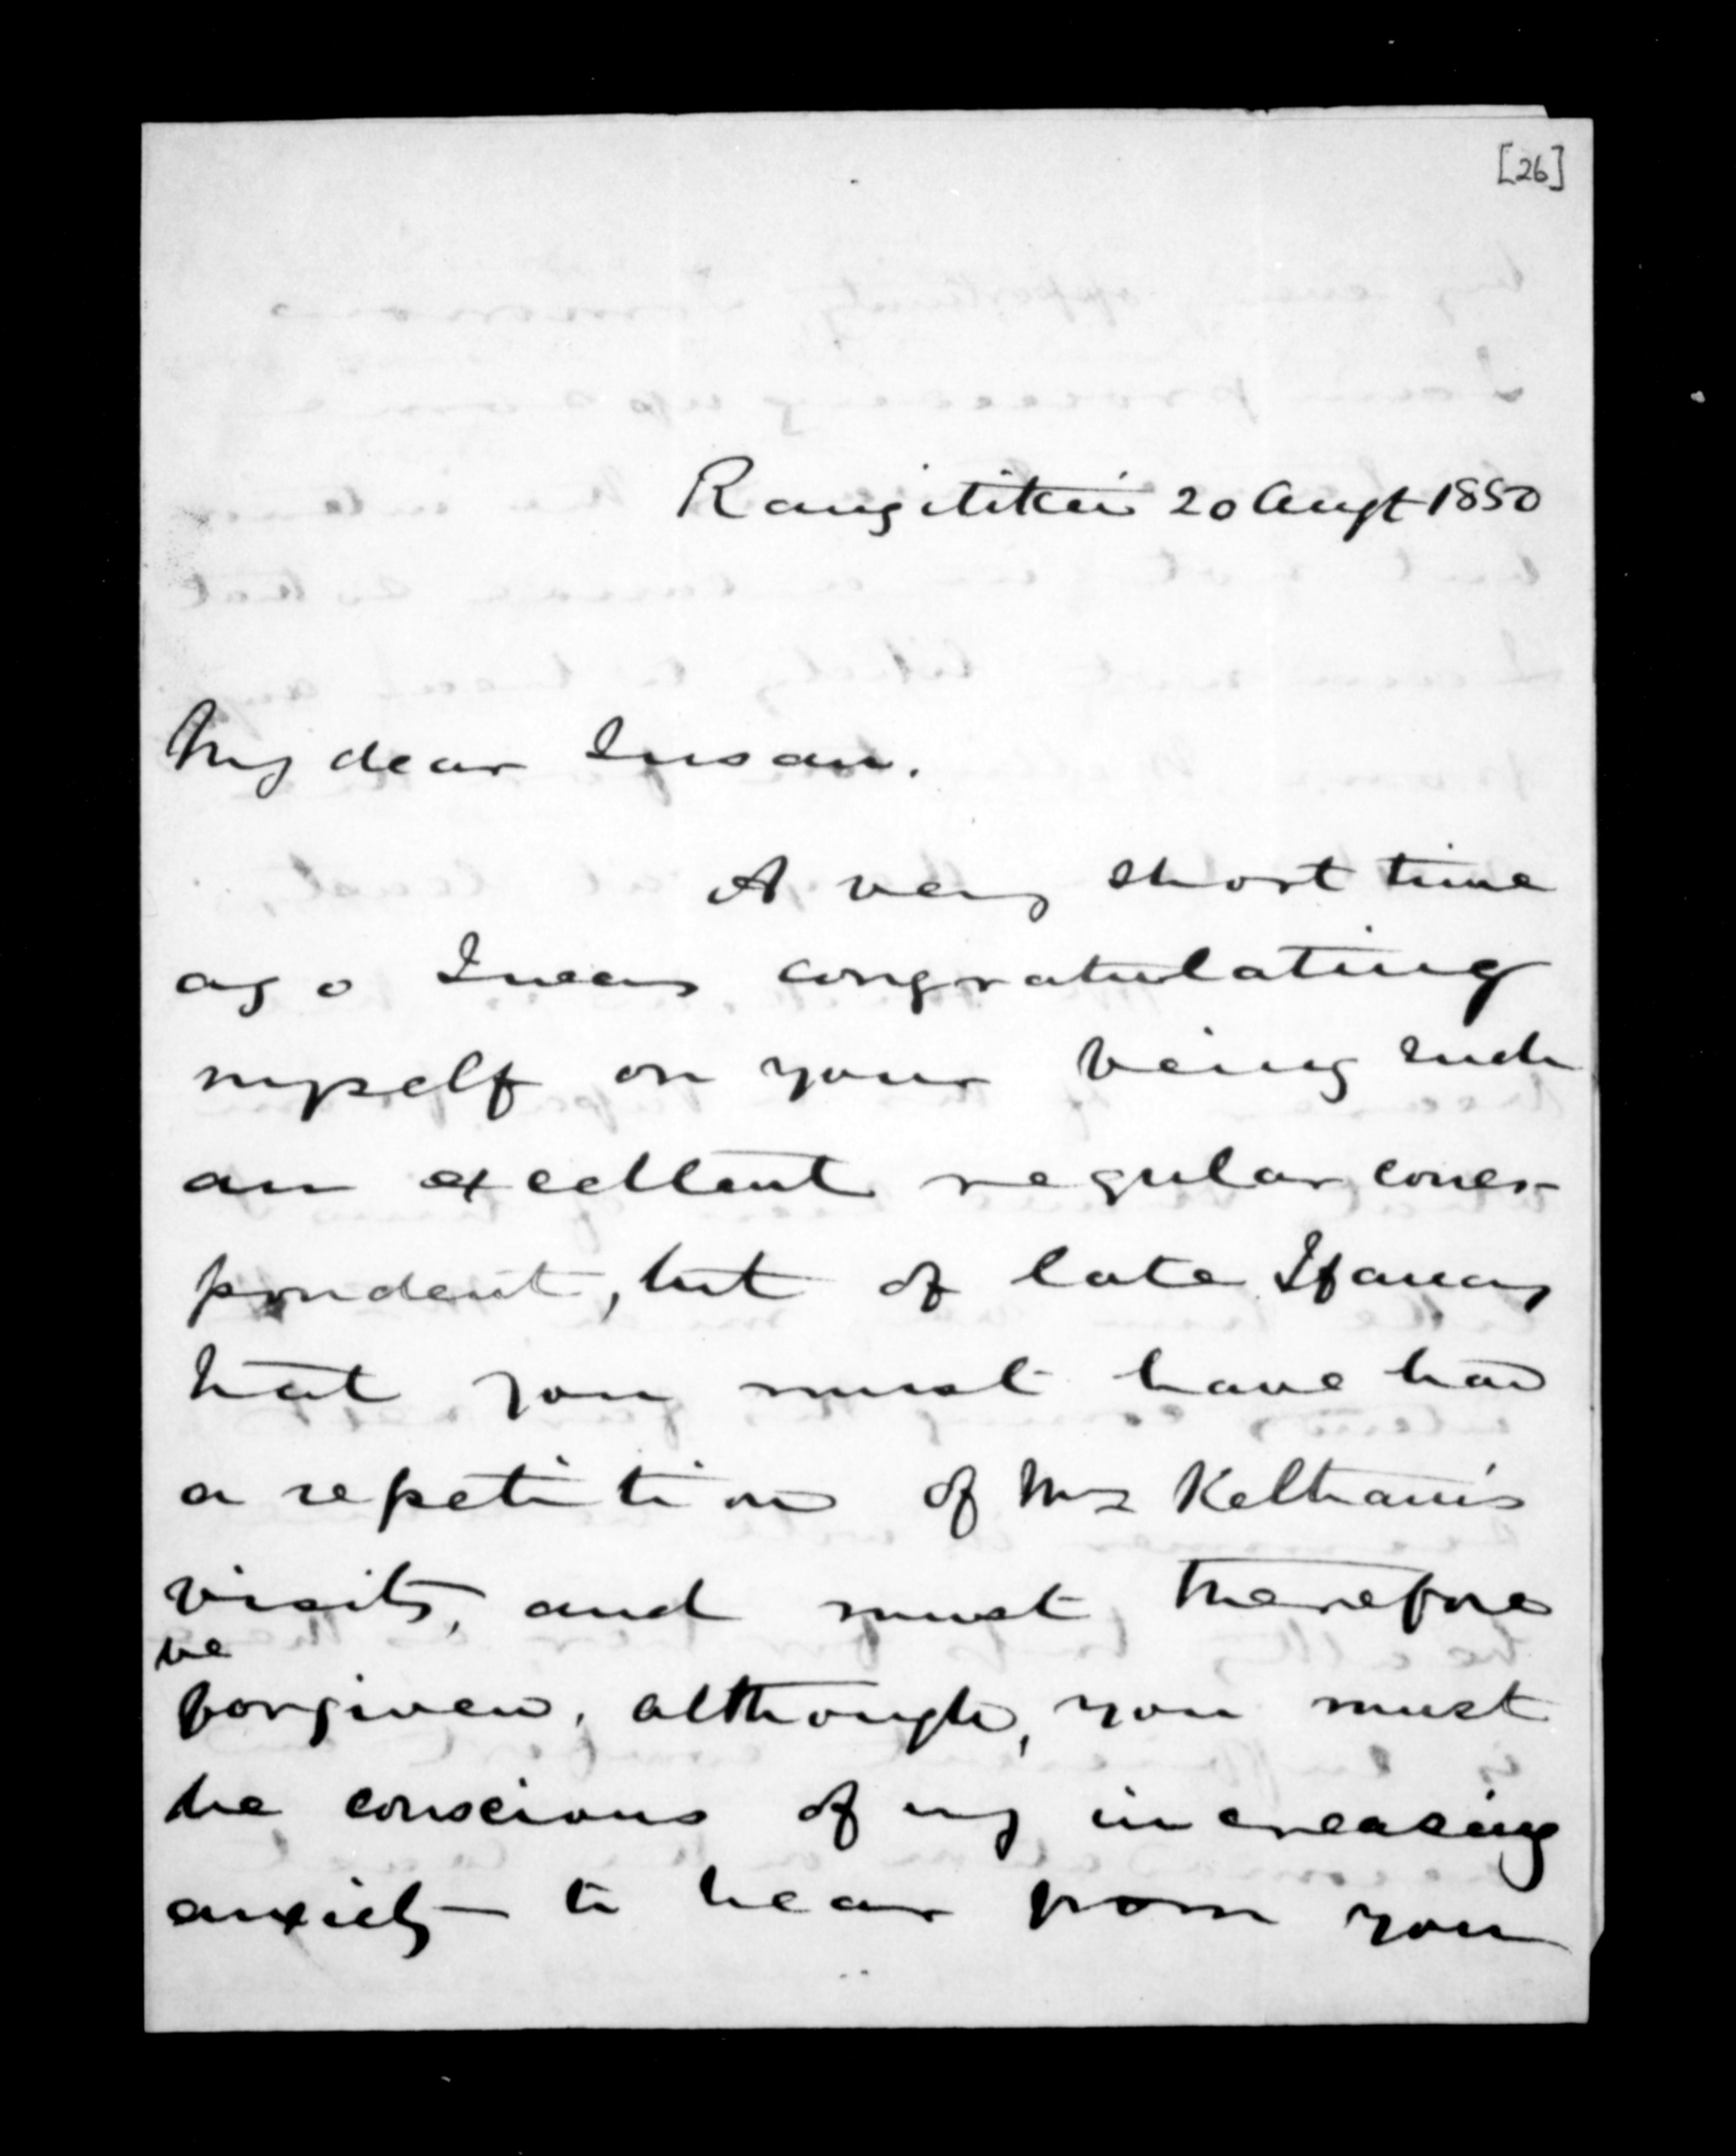 [26]
Rangitikei 20 Augt 1850
My dear Susan.
A very short time
ago I was congratulating
myself on your being such
an excellent regular corres-
pondent, but of late I fancy
that you must have had
a repetition of Mrs Keltham's
visits, and must therefore
be
forgiven, although, you must
be conscious of my increasing
anxiety to hear from you